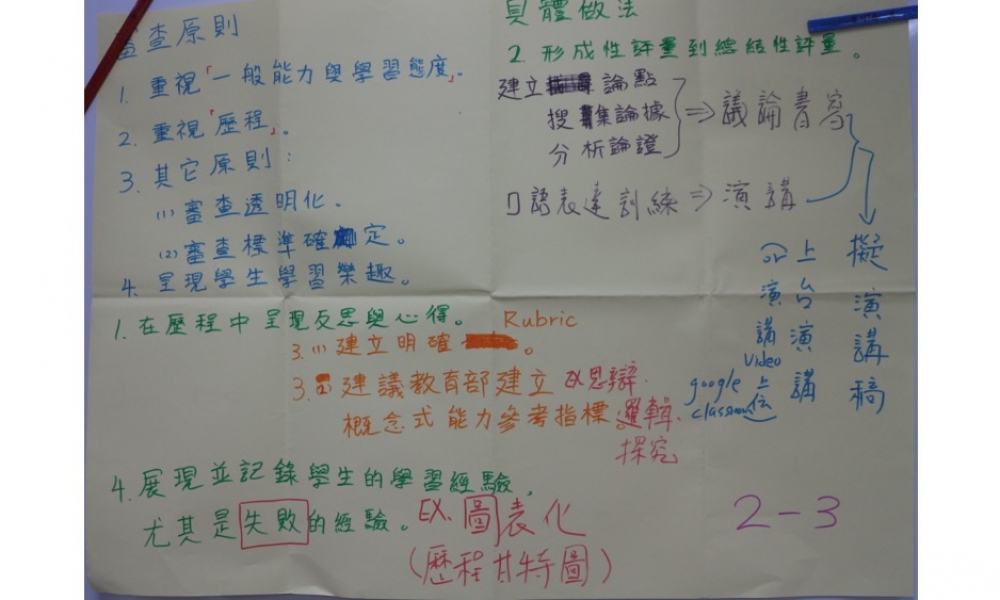 審查原則
1. 重視「一般能力與學習態度」。
2. 重視「歷程」。
3. 其它原則：
(1) 審查透明化．
(2) 審查標準確定。
4. 呈現學生學習樂趣。
具體做法
2. 形成性評量到總結性評量。
建立 論點
搜集論據
分析論證
⇒ 議論書寫
口語表達訓練 ⇒ 演講
擬演講稿
上台演講
or 演講 video
上傳
google classroom
1. 在歷程中呈現反思與心得。
3. (1) 建立明確 Rubric。
3. (2) 建議教育部建立
概念式能力參考指標
EX 思辯．
邏輯．
探究
4. 展現並記錄學生的學習經驗，
尤其是失敗的經驗。
EX. 圖表化
(歷程甘特圖)
2-3